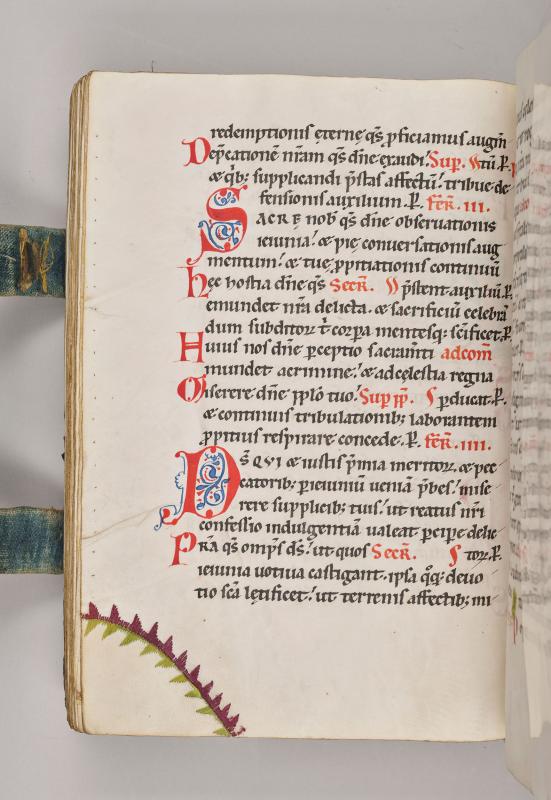 redemptionis ęternę q̄s p̱ficiamus augm̄
Dep̄catione n̄ram q̄s dn̄e exaudi. Sup. tū. P.
& q̇b; supplicandi p̄stas affectū. tribue de-
fensionis auxilium. P. fēR̄. III.
SACRĘ nob̄ q̄s dn̄e obseruationis
ieiunia. & pię conuersationis aug
mentum. & tuę p̱pitiationis continuū
hec hostia dn̄e q̄s Secr̄. p̄stent auxiliū. P.
emundet n̄ra delicta. & sacrificiū celebrā
dum subditoꝝ t̄ corpa mentesq; sc̄ificet. P.
Huius nos dn̄e ꝑceptio sacram̄ti adcom̄
mundet a crimine. & ad celestia regna
Miserere dn̄e pplo tuo. Sup pp̄. ꝑducat. P.
& continuis tribulationib; laborantem
p̱pitius respirare concede. P. fēR̄. IIII.
Dn̄s QVI & iustis p̄mia meritoꝝ. & pec
catorib; ꝑ ieiuniū ueniā p̄bes. mise
rere supplicib; tuis. ut reatus nr̄i
confessio indulgentiā ualeat ꝑcipe delic
PR̄A q̄s omp̄s ds̄. ut quos Secr̄. toꝝ. P.
ieiunia uotiua castigant. ipsa q̊q; deuo
tio sc̄a lętificet. ut terrenis affectib; mi-